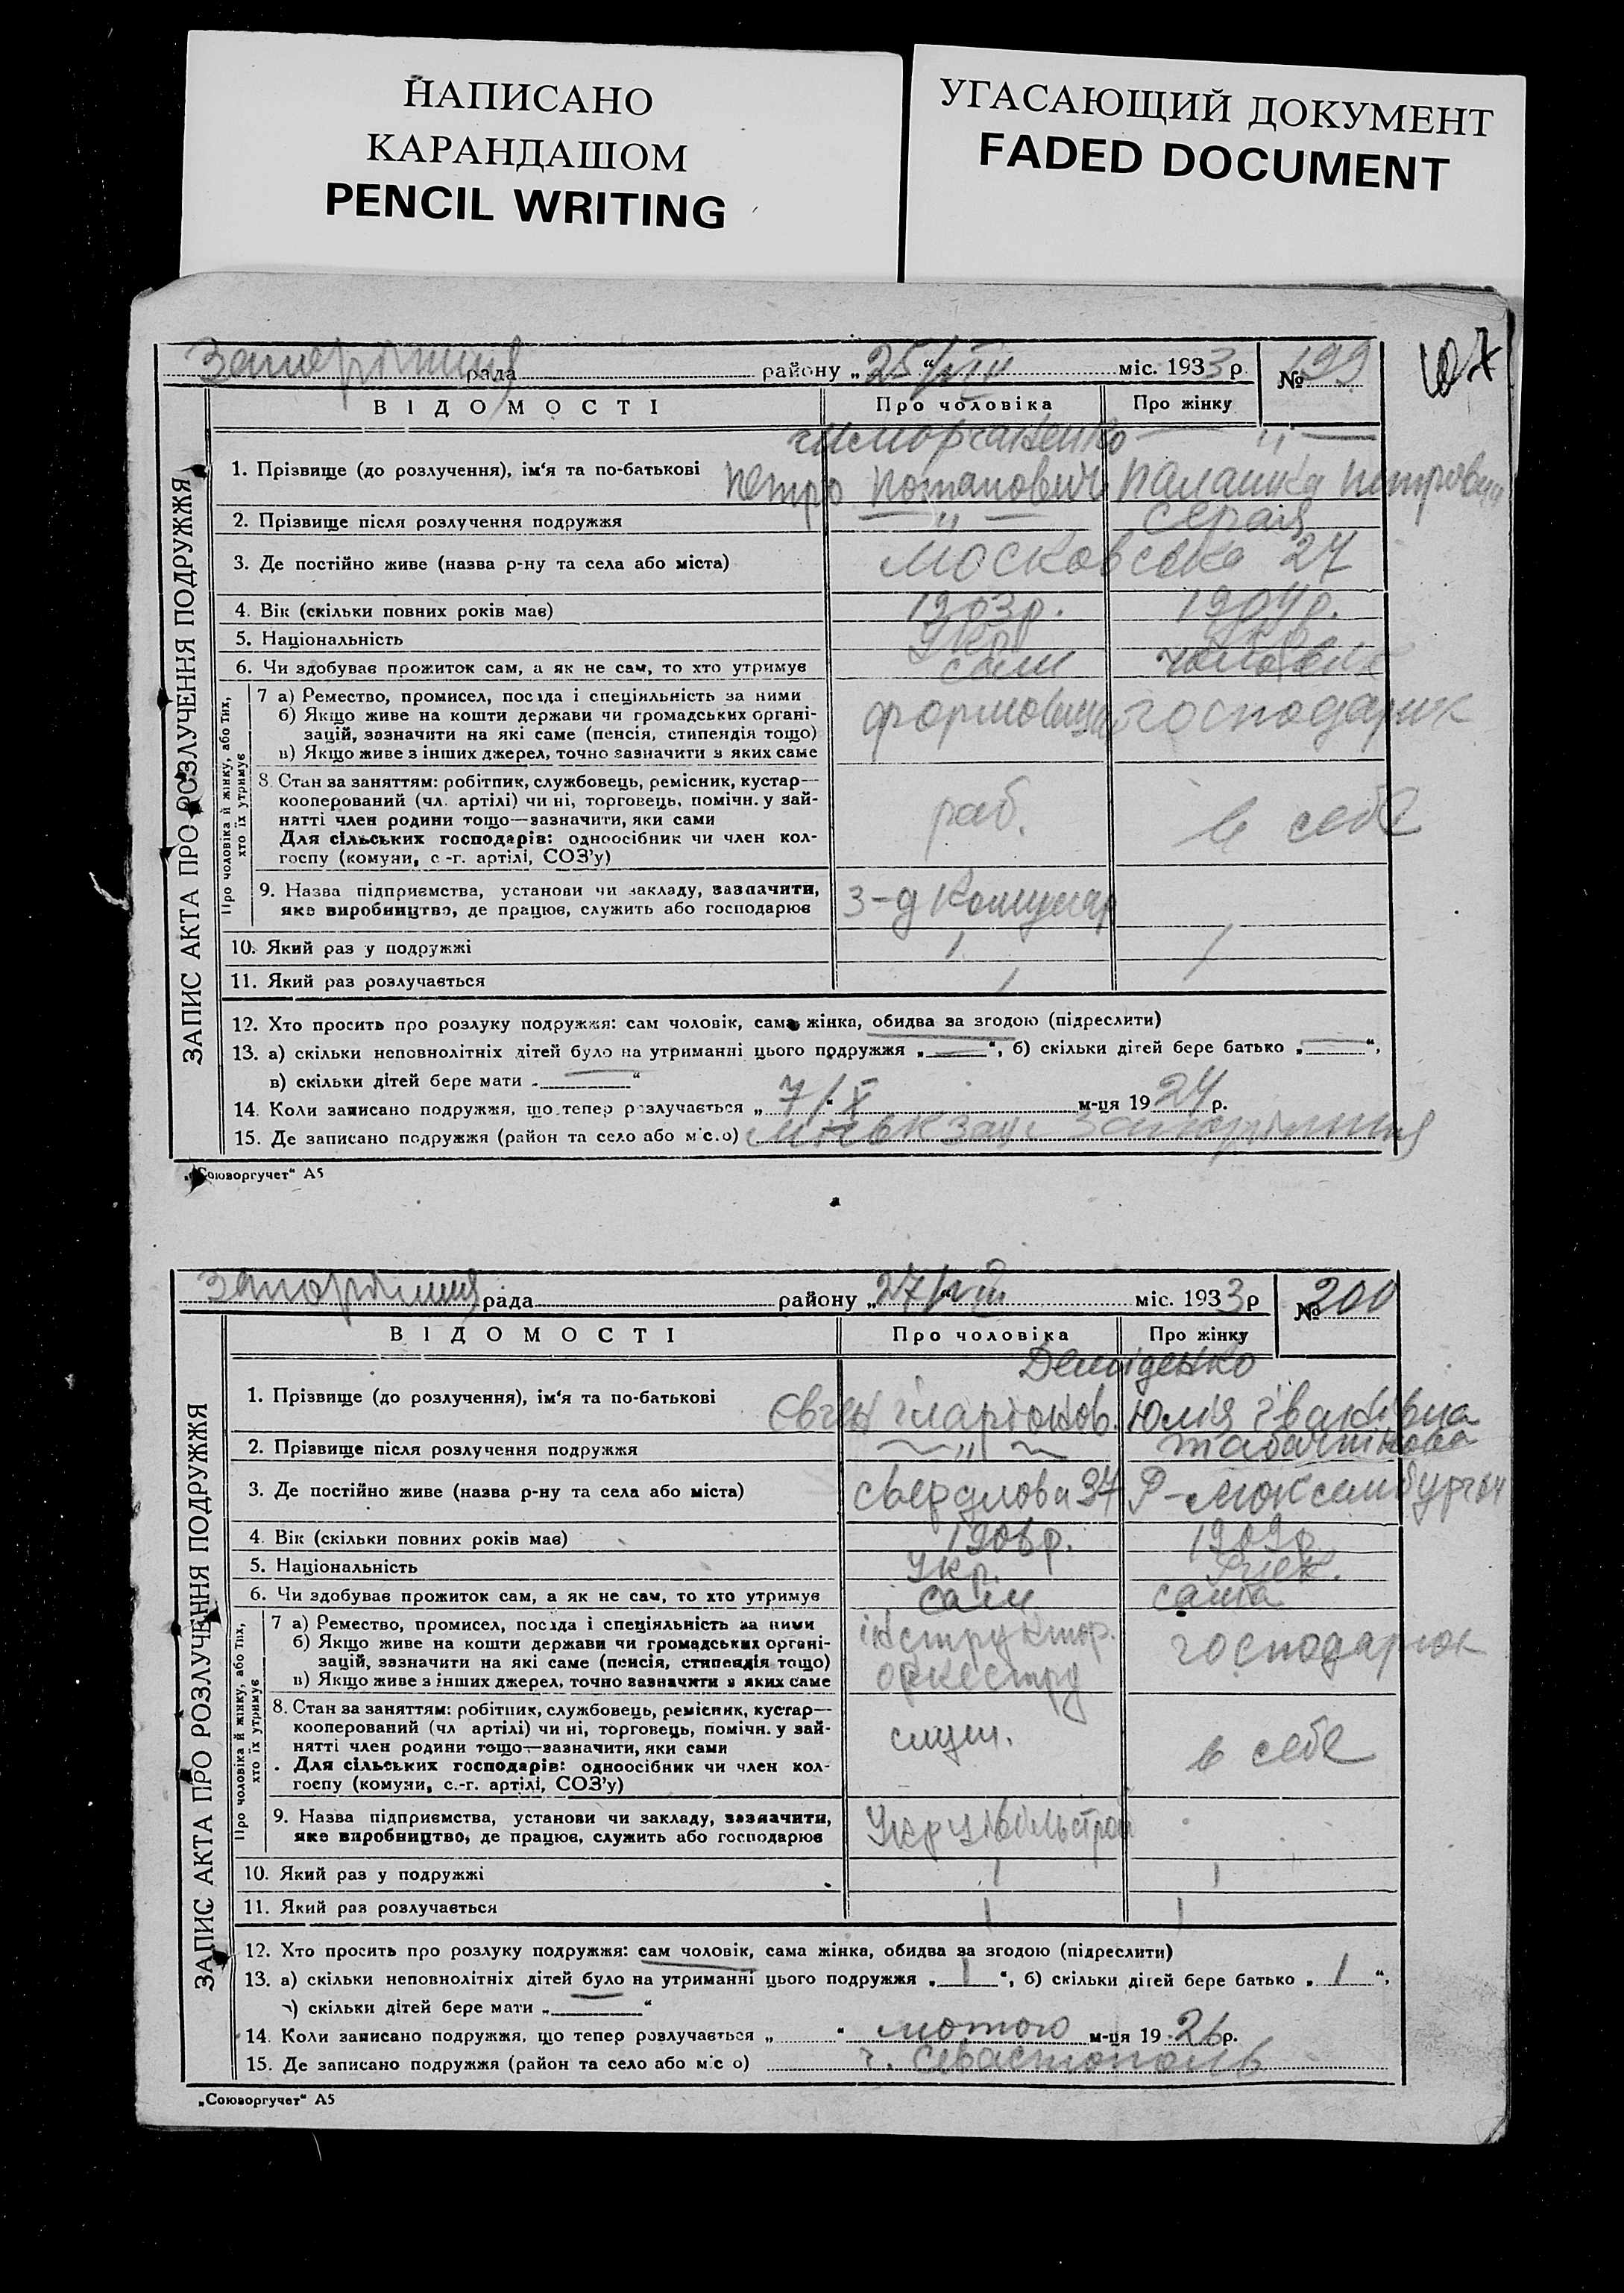 НАПИСАНО
КАРАНДАШОМ
PENCIL WRITING
УГАСАЮЩИЙ ДОКУМЕНТ
FADED DOCUMENT
ЗАПИС АКТА ПРО РОЗЛУЧЕННЯ ПОДРУЖЖЯ
рада району „25“/VIII міс. 1933 р № 199
107
ВІДОМОСТІ Про чоловіка Про жінку
— „ —
1. Прізвище (до розлучення), ім‘я та по-батькові Петро Потапович Палашка Петровна
2. Прізвище після розлучення подружжя — „ — Серая
3. Де постійно живе (назва р-ну та села або міста) Московська 27
4. Вік (скільки повних років має) 1903р. 1904р.
5. Національність Укр
6. Чи здобуває прожиток сам, а як не сам, то хто утримує сам чоловік
Про чоловіка й жінку, або тих, хто їх утримує
7 а) Ремество, промисел, посада і спеціяльність за ними
б) Якщо живе на кошти держави чи громадських органі-
зацій, зазначити на які саме (пенсія, стипендія тощо)
в) Якщо живе з інших джерел, точно зазначити з яких саме
формовщик господарюк
8. Стан за заняттям: робітник, службовець, ремісник, кустар—
кооперований (чл. артілі) чи ні, торговець, помічн. у зай-
нятті член родини тощо—зазначити, яки сами
Для сільських господарів: одноосібник чи член кол-
госпу (комуни, с.-г. артілі, СОЗ’у)
раб. в себе
9. Назва підприємства, установи чи закладу, зазначити,
яке виробництво, де працює, служить або господарює
з-д Комунар
10. Який раз у подружжі 1 1
11. Який раз розлучається 1
12. Хто просить про розлуку подружжя: сам чоловік, сама жінка, обидва за згодою (підреслити)
13. а) скільки неповнолітніх дітей було на утриманні цього подружжя „—“, б) скільки дітей бере батько „—“,
в) скільки дітей бере мати „ “
14. Коли записано подружжя, що тепер розлучається „7/X“ м-ця 1924 р.
15. Де записано подружжя (район та село або місто) міськ загс
„Союзоргучет“ А5
ЗАПИС АКТА ПРО РОЗЛУЧЕННЯ ПОДРУЖЖЯ
рада району „27“/VIII міс. 1933 р № 200
ВІДОМОСТІ Про чоловіка Про жінку
Деміденко
1. Прізвище (до розлучення), ім‘я та по-батькові Євген іларіонов. Юлія івановна
2. Прізвище після розлучення подружжя — „ — Табачнікова
3. Де постійно живе (назва р-ну та села або міста) Свердлова 37 Р-Люксембурген
4. Вік (скільки повних років має) 1906р. 1909р.
5. Національність Укр.
6. Чи здобуває прожиток сам, а як не сам, то хто утримує сам сама
Про чоловіка й жінку, або тих, хто їх утримує
7 а) Ремество, промисел, посада і спеціяльність за ними
б) Якщо живе на кошти держави чи громадських органі-
зацій, зазначити на які саме (пенсія, стипендія тощо)
в) Якщо живе з інших джерел, точно зазначити з яких саме
інструктор. господарюк
оркестру
8. Стан за заняттям: робітник, службовець, ремісник, кустар—
кооперований (чл артілі) чи ні, торговець, помічн. у зай-
нятті член родини тощо—зазначити, яки сами
Для сільських господарів: одноосібник чи член кол-
госпу (комуни, с.-г. артілі, СОЗ’у)
служ. в себе
9. Назва підприємства, установи чи закладу, зазначити,
яке виробництво, де працює, служить або господарює
Укрцівільстрой
10. Який раз у подружжі 1 1
11. Який раз розлучається 1 1
12. Хто просить про розлуку подружжя: сам чоловік, сама жінка, обидва за згодою (підреслити)
13. а) скільки неповнолітніх дітей було на утриманні цього подружжя „1“, б) скільки дітей бере батько „1“,
в) скільки дітей бере мати „ “
14. Коли записано подружжя, що тепер розлучається „ “ лютого м-ця 1926 р.
15. Де записано подружжя (район та село або місто) г. Севастополь
„Союзоргучет“ А5